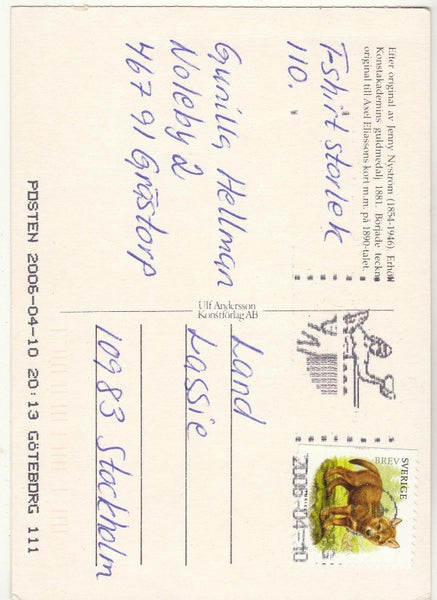 Efter original av Jenny Nyström (1854-1946). Erhöll
Konstakademins guldmedalj 1881. Började teckna
original till Axel Eliassons kort m.m. på 1890-talet.
T-shirt storlek
110.
Gunilla Hellman
Noleby 2
467 91 Grästorp
Ulf Andersson
Konstförlag AB
SVERIGE
BREV
2006-04-10
Land
Lassie
10983 Stockholm
POSTEN 2006-04-10 20:13 GÖTEBORG 111